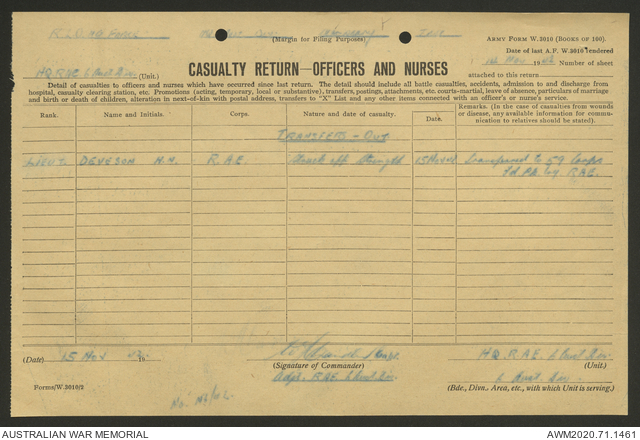 ARMY FORM W.3010 (BOOKS OF 100).
(Margin for Filing Purposes)
Date of last A.F. W.3010 rendered
Number of sheet
HQ RAE 6 Aust Div (Unit.)
CASUALTY RETURN—OFFICERS AND NURSES
attached to this return
Detail of casualties to officers and nurses which have occurred since last return. The detail should include all battle casualties, accidents, admission to and discharge from
hospital, casualty clearing station, etc. Promotions (acting, temporary, local or substantive), transfers, postings, attachments, etc. courts-martial, leave of absence, particulars of marriage
and birth or death of children, alteration in next-of-kin with postal address, transfers to "X" List and any other items connected with an officer's or nurse's service.
Rank.
Name and Initials.
Corps.
Nature and date of casualty.
Date.
Remarks. (In the case of casualties from wounds
or disease, any available information for commu-
nication to relatives should be stated).
TRANSFERS - OUT
LIEUT DEVESON H.H. R.A.E. Struck off Strength 15 Nov transferred to 59 Corps
Fd. Pk. Coy RAE.
(Date) 15 Nov
Capt.
(Signature of Commander)
Adjt. RAE 6 Aust Div
HQ. R.A.E. 6 Aust Div
(Unit.)
6 Aust. Div.
(Bde., Divn., Area, etc., with which Unit is serving.)
Forms/W.3010/2
AUSTRALIAN WAR MEMORIAL
AWM2020.71.1461